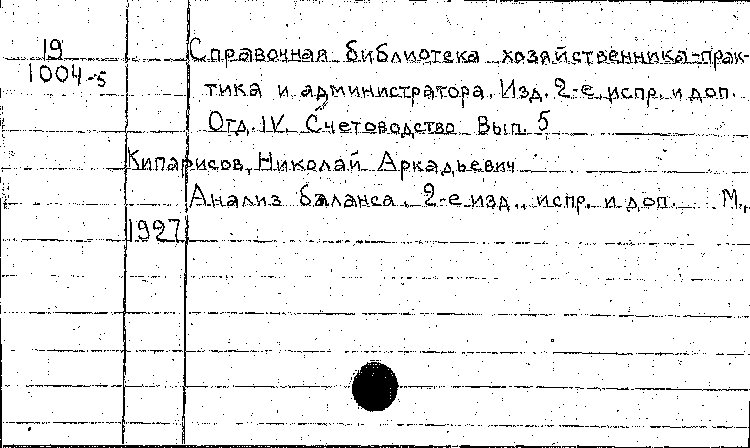 19
1004-5
Справочная библиотека хозяйственника-прак-
тика и администратора. Изд. 2-е, испр. и доп.
Отд. IV. Счетоводство Вып. 5
Кипарисов, Николай Аркадьевич
Анализ баланса. 2-е изд., испр. и доп. М.,
1927